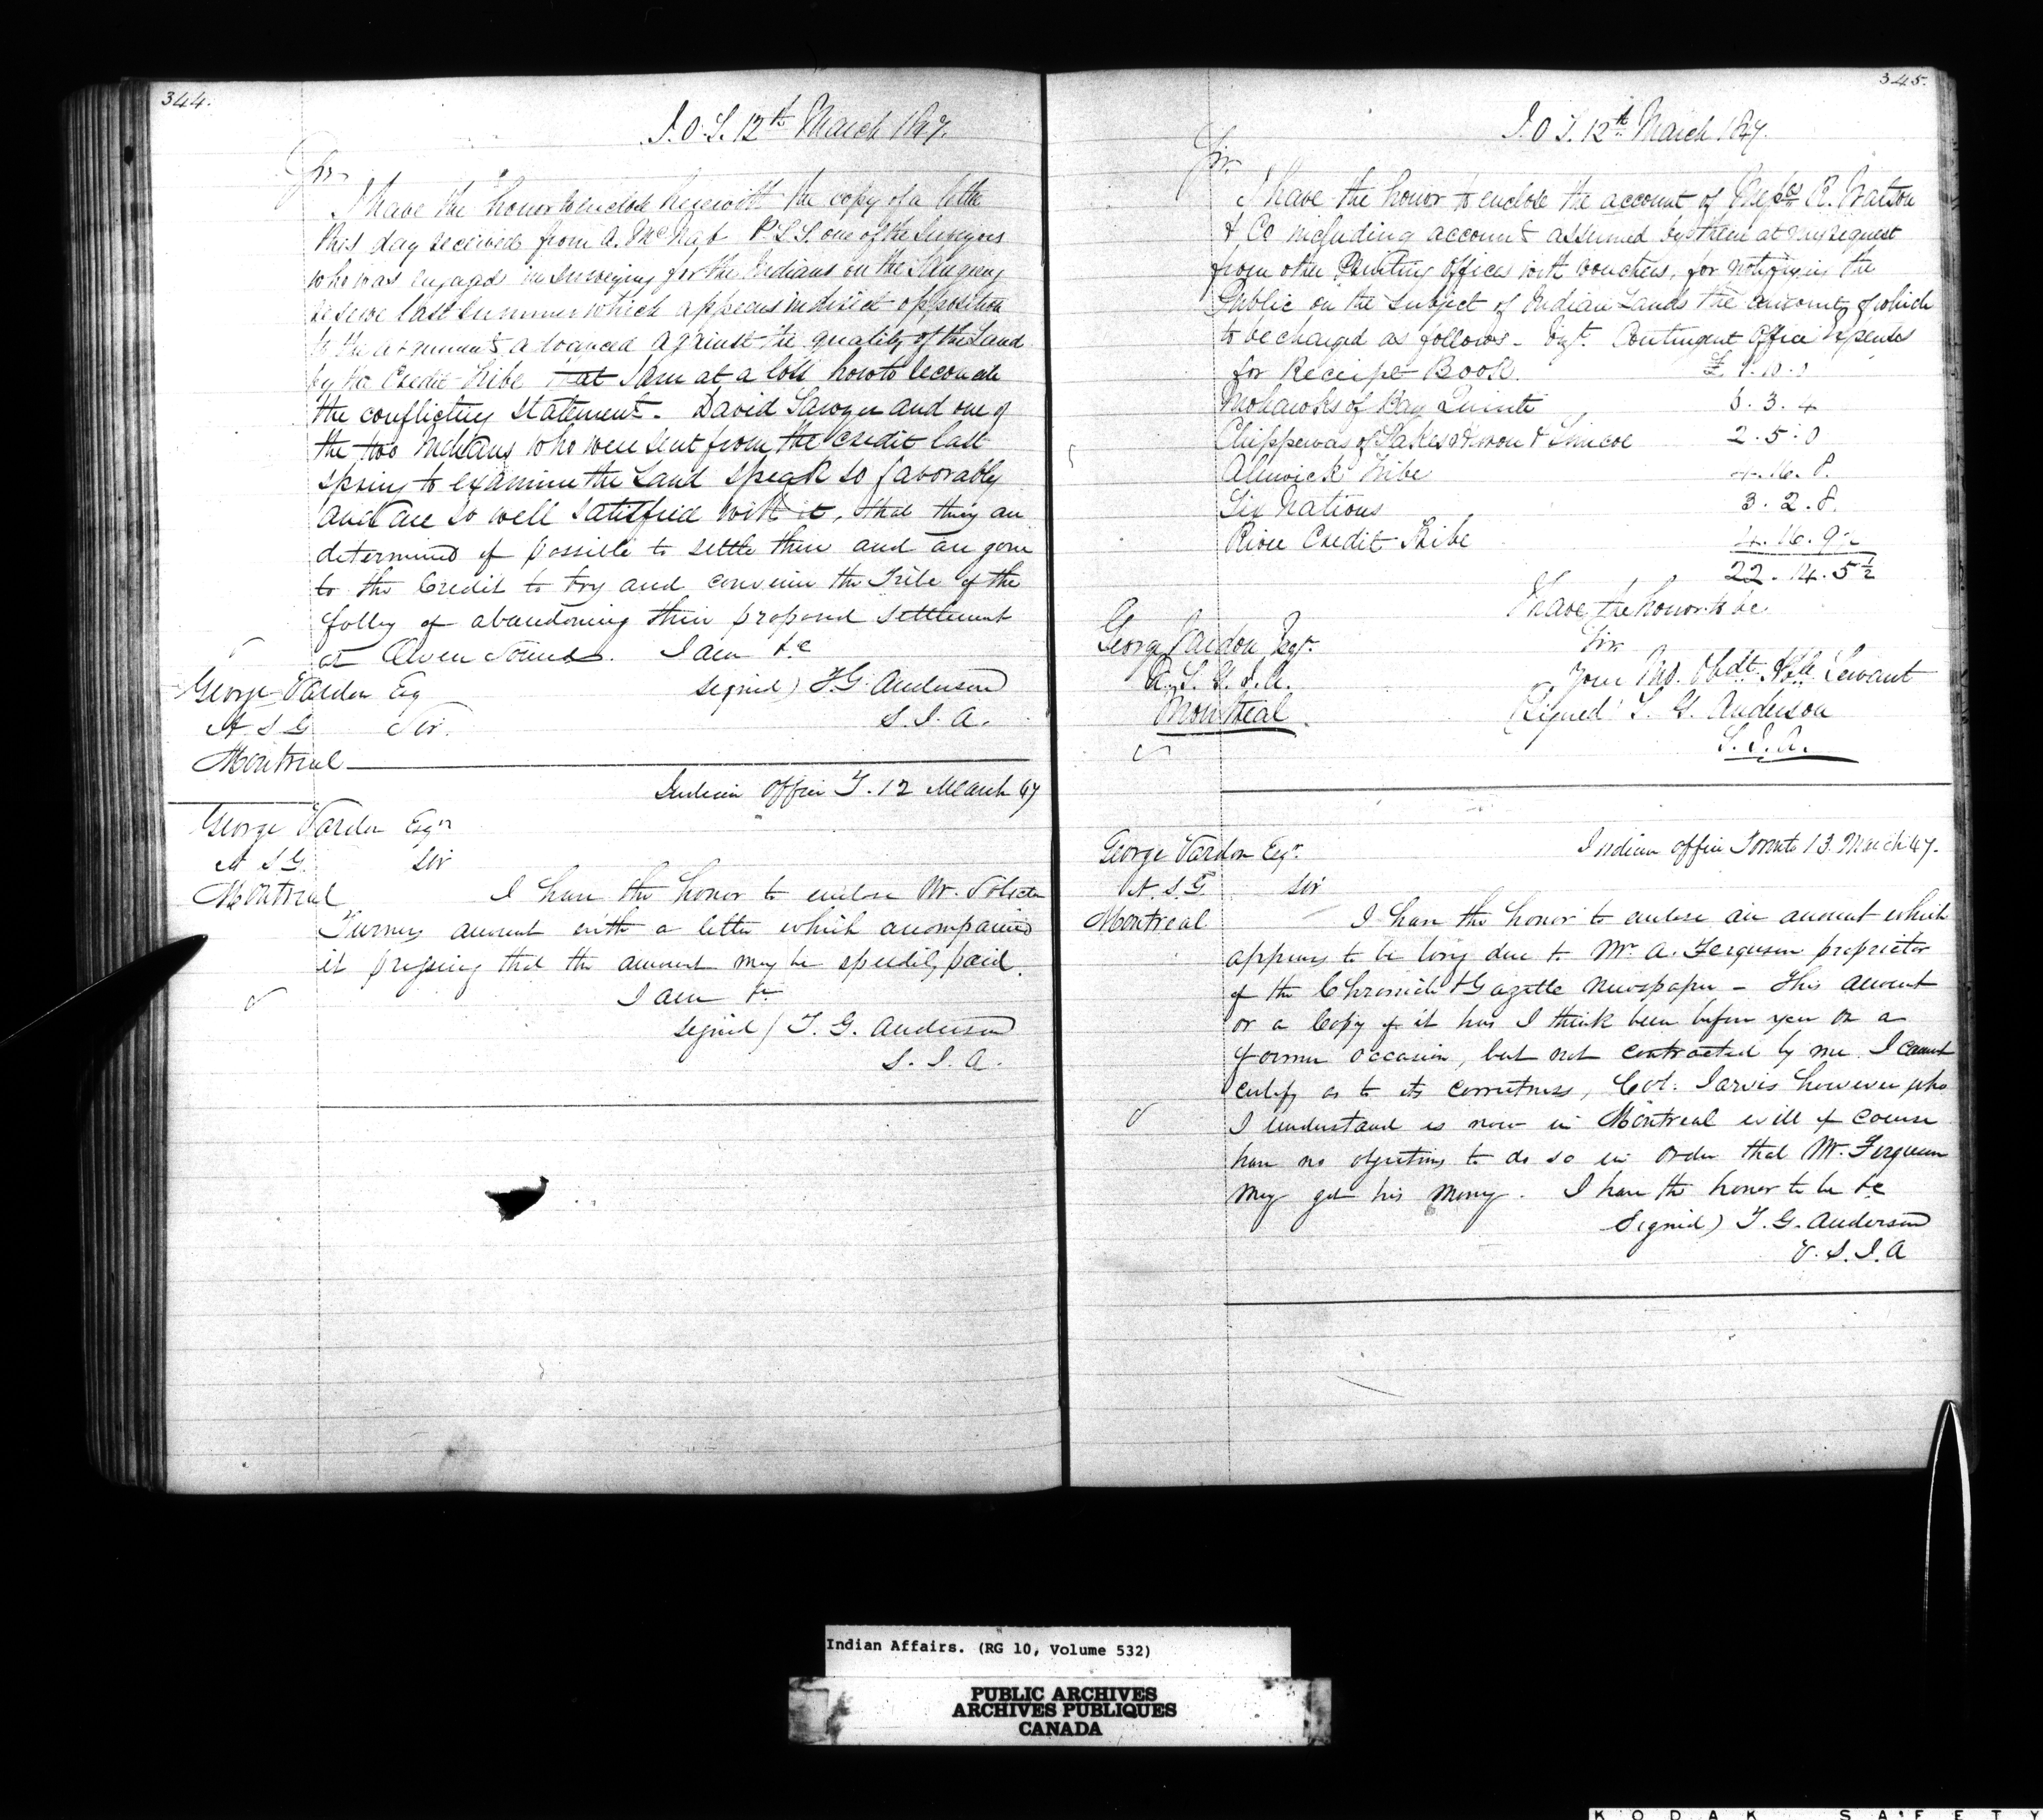 344.
I.O.T. 12th March 1847.
Sir
I have the honor to enclose herewith the copy of a letter
this day received from A. McNab P.L.S. one of the Surveyors
who was engaged in surveying for the Indians on the Saugeeng
reserve last summer which appears in direct opposition
to the arguments advanced against the quality of the Land
by the Credit Tribe that I am at a loss how to reconcile
the conflicting statements. David Sawyer and one of
the two Indians who were sent from the credit last
spring to examine the Land speak so favorably
and are so well satisfied with it, that they are
determined if possible to settle there and are gone
to the Credit to try and convince the Tribe of the
folly of abandoning their proposed settlement
at Owen Sound. I am &c
George Vardon Esq signed) T.G. Anderson
A.S.G Sir. S.I.A.
Montreal
Indian Office T. 12 March 47
George Vardon Esqr
A S G. Sir
Montreal I have the honor to enclose Mr.
Turners account with a letter which accompanied
it pressing that the amount may be speedily paid.
I am &c
signed / T. G. Anderson
S. I. A.
345.
I.O.T. 12th March 1847.
Sir
I have the honor to enclose the account of Messrs R. Watson
& Co including accounts assumed by them at my request
from other Printing Offices with vouchers, for notifying the
Public on the subject of Indian Lands the amounts of which
to be charged as follows - Vizt. Contingent Office Expenses
for Receipt Book. £
Mohawks of Bay Quinte 3. 4
Chippewas of Lakes Huron & Simcoe 2. 5. 0
Alnwick Tribe 4. 16. 8.
Six Nations 3. 2. 8.
River Credit Tribe 4. 16. 9½
22. 14. 5½
I have the honor to be
Sir
George Vardon Esqr.
A. S. G. I. A. Your Mo. Obdt. Hble Servant
Montreal. Signed T. G. Anderson
S.I.A.
George Vardon Esqr. Indian Office Toronto 13. March 47.
A. S. G. Sir
Montreal I have the honor to enclose an account which
appears to be long due to Mr. A. Ferguson proprietor
of the Chronicle & Gazette Newspaper - This account
or a Copy of it has I think been before you on a
former occasion, but not contracted by me I cannot
certify as to its correctness, Col: Jarvis however who
I understand is now in Montreal will of course
have no objections to do so in order that Mr. Ferguson
may get his money. I have the honor to be &c
Signed) T. G. Anderson
V. S. I. A
Indian Affairs. (RG 10, Volume 532)
PUBLIC ARCHIVES
ARCHIVES PUBLIQUES
CANADA
KODAK SAFETY